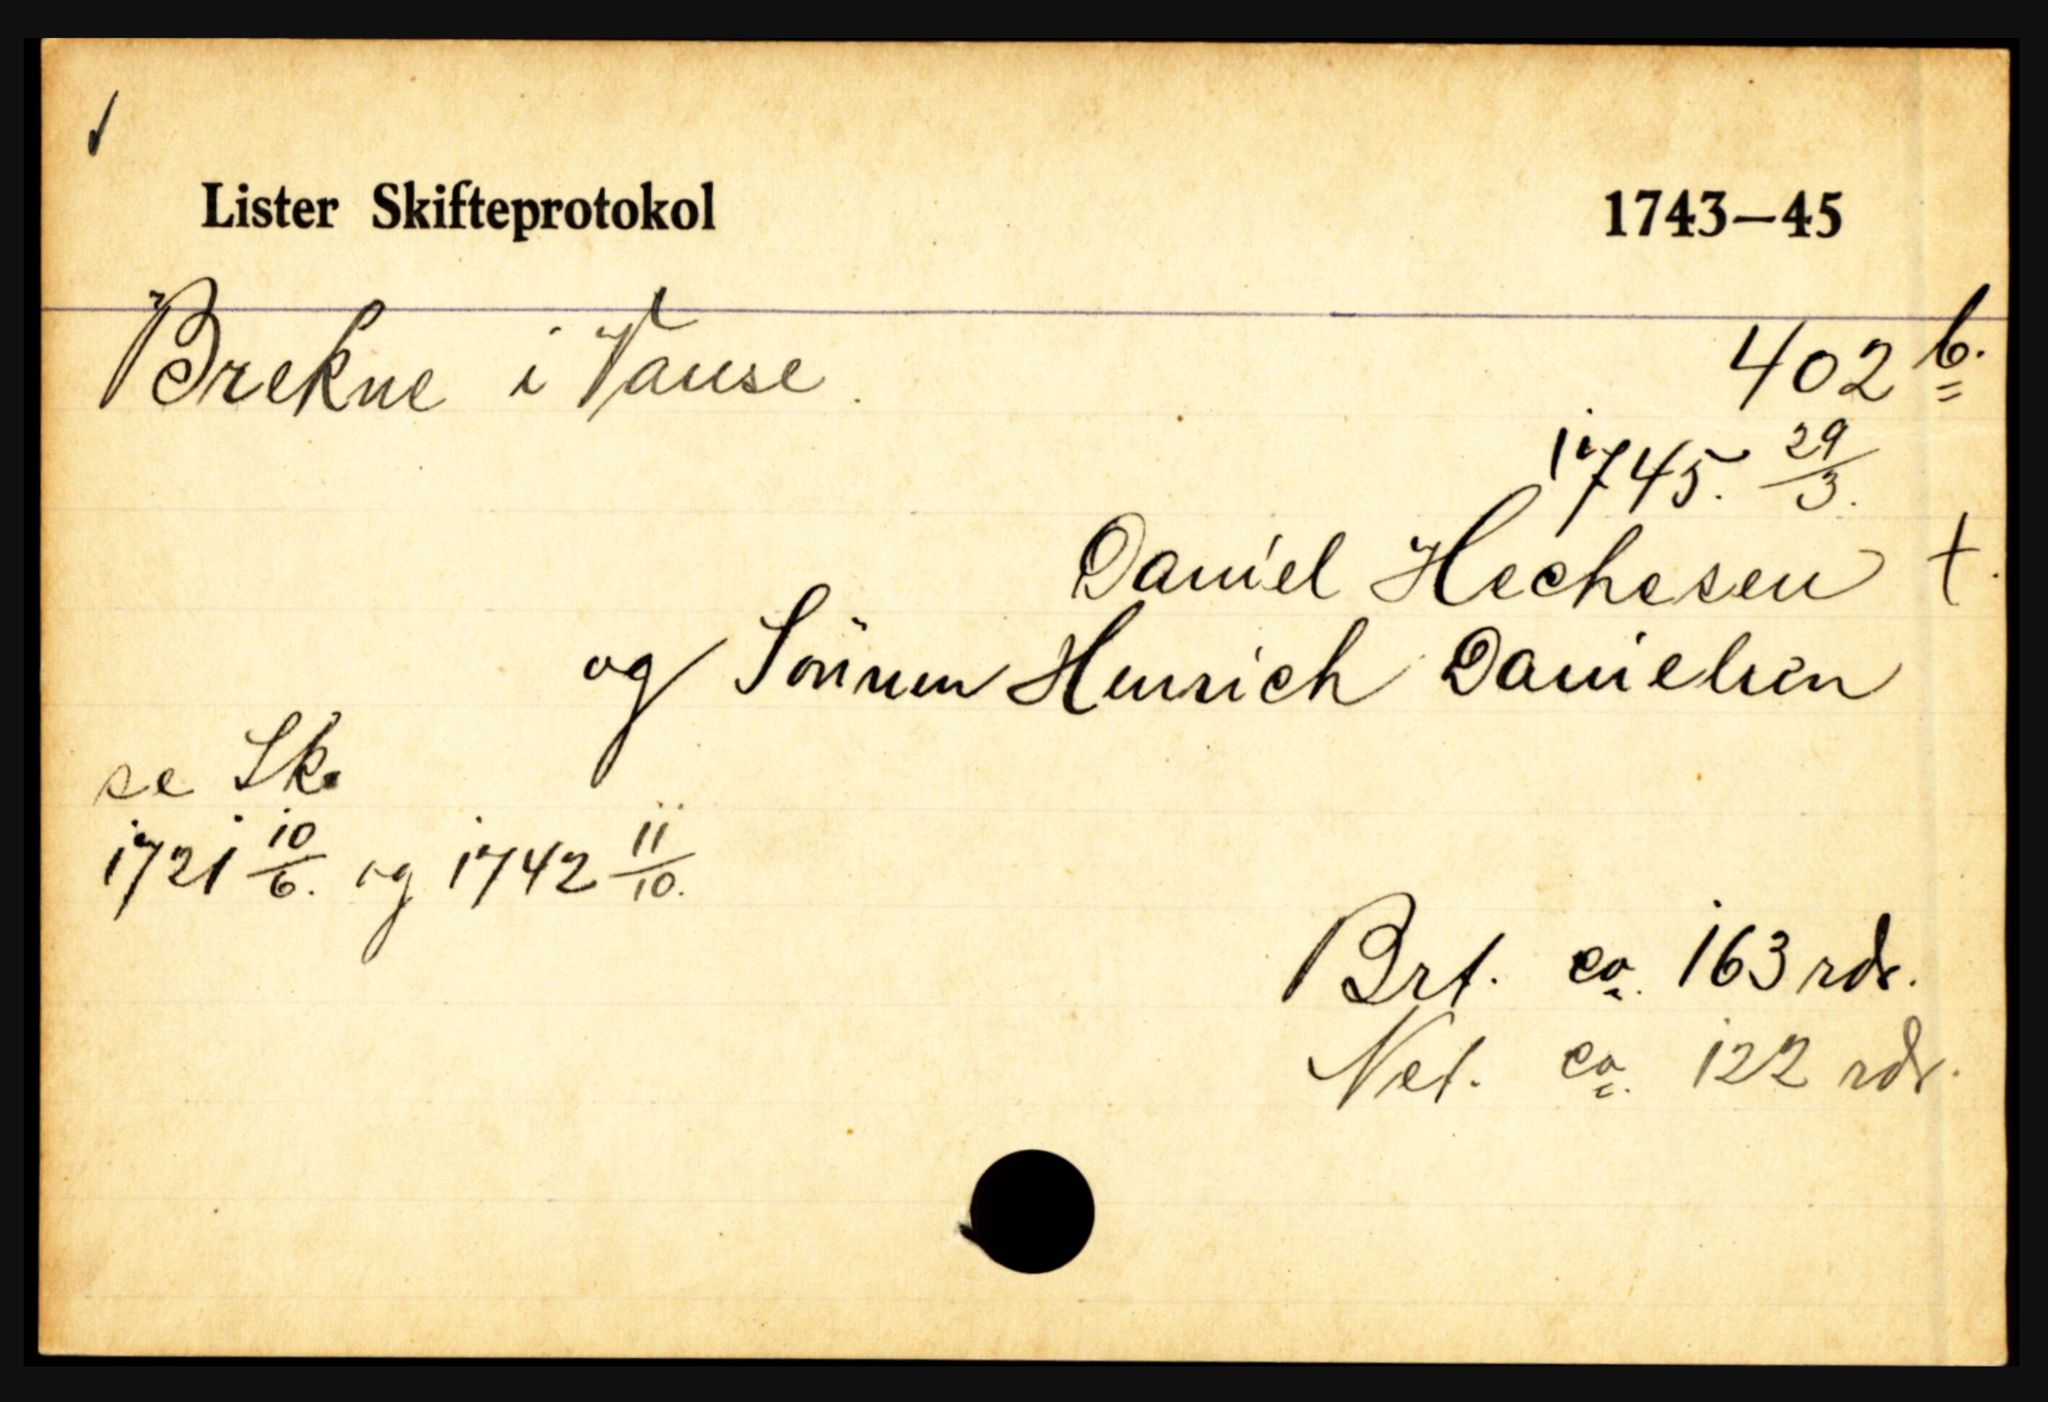 Lister Skifteprotokol 1743–45
Brekne i Vanse. 402 b.
1745. 29/3.
Daniel Hechesen †.
og Sönnen Henrich Danielsen
se Sk.
1721 10/6. og 1742 11/10.
Brt. ca. 163 rdr.
Net. ca. 122 rdr.